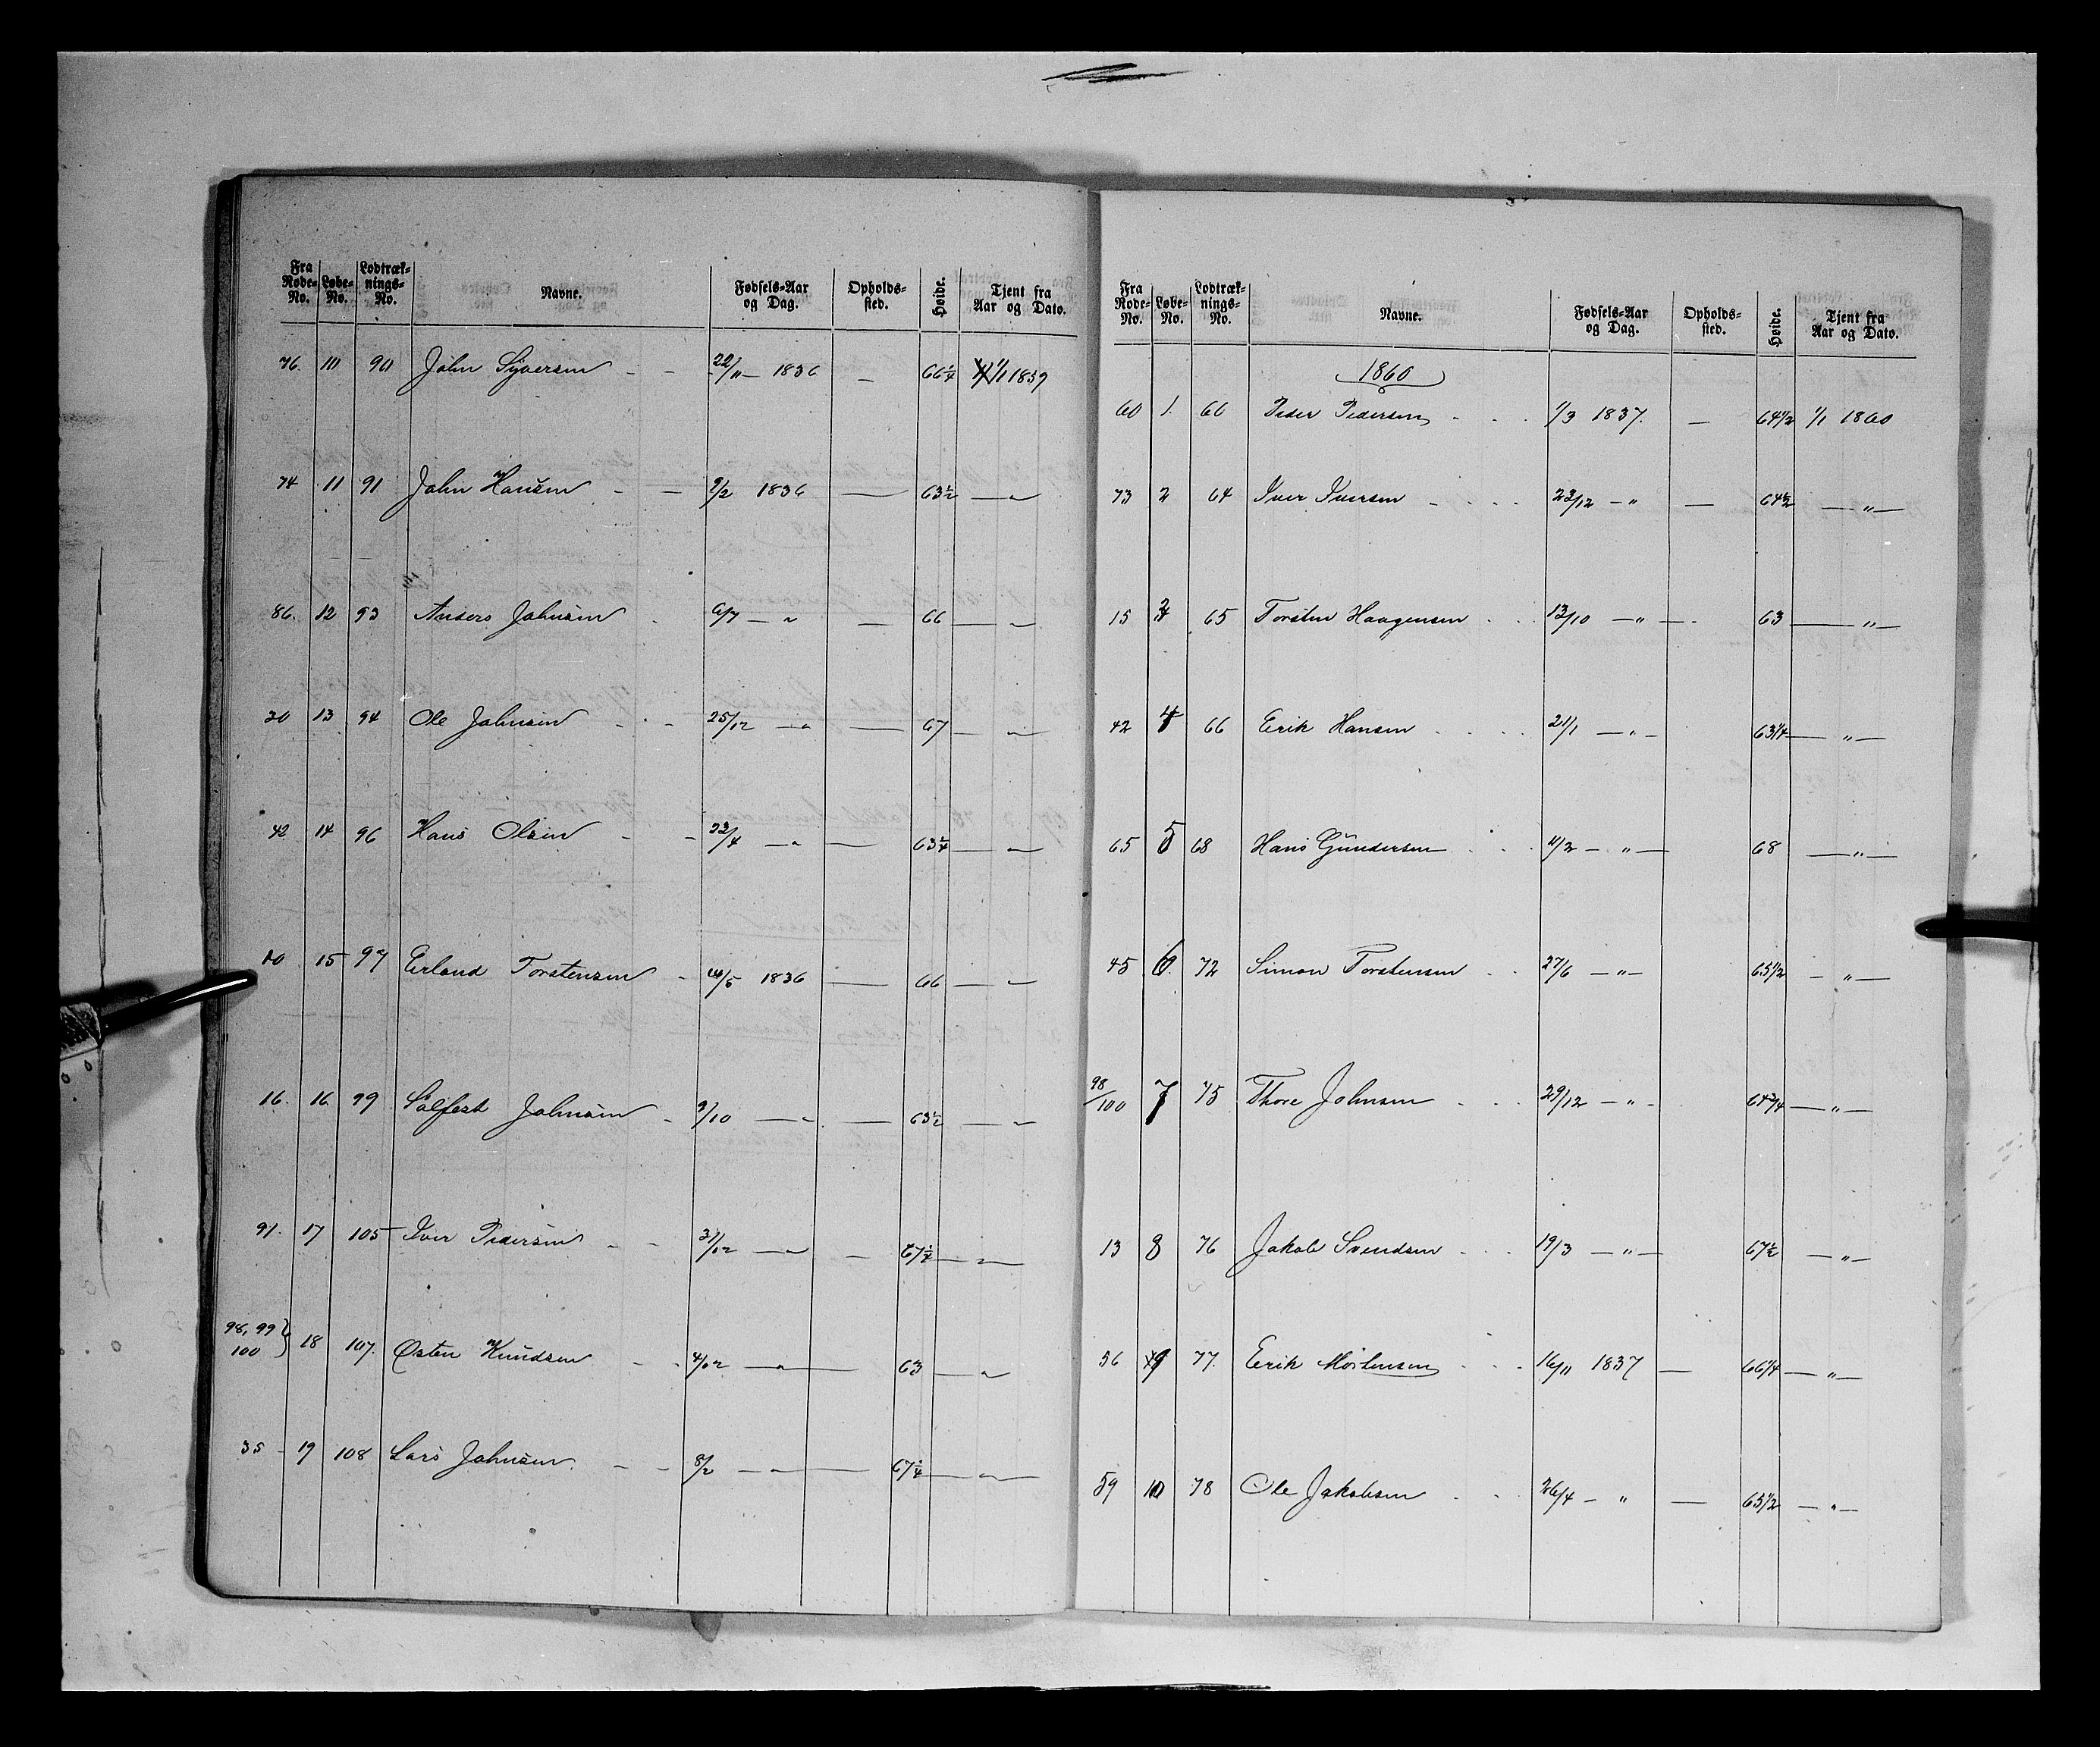 Fra Rode-No. Løbe-No. Lodtræk-nings-No. Navne. Fødsels-Aar og Dag. Opholds-sted. Høide. Tjent fra Aar og Dato.
76. 10 90 John Syversen - - 22/11 1836 — 66 1/4 1/1 1859
74 11 91 John Hansen - - 9/2 1836 — 63 1/2 — " —
86. 12 93 Anders Johnsen - 6/7 — " — 66 — " —
30 13 94 Ole Johnsen - - - 25/12 — " — 67 — " —
42 14 96 Hans Olsen - - 23/4 — " — 63 1/4 — " —
10 15 97 Erland Torstensen - 10/5 1836 — 66 — " —
16. 16 99 Sølfest Johnsen - 9/10 — " — 63 1/2 — " —
91. 17 105 Iver Pedersen - - 31/12 — " — 67 1/4 — " —
98, 99 100 } 18 107. Østen Knudsen - - 4/12 — " — 63 — " —
35 - 19 108 Lars Johnsen. - - 8/2 — " — 67 1/4 — " —
Fra Rode-No. Løbe-No. Lodtræk-nings-No. Navne. Fødsels-Aar og Dag. Opholds-sted. Høide. Tjent fra Aar og Dato.
1860
60 1. 60 Peder Pedersen - - - 1/3 1837. — 64 1/2 1/1 1860
73 2 64 Iver Iversen - - - - 23/12 — " — 64 1/2 — " —
15 3 65 Torsten Haagensen - - 13/10 — " — 63 — " —
42 4 66 Erik Hansen - - - - 21/1 — " — 63 1/4 — " —
65 5 68 Hans Gundersen - - - 11/2 — " — 68 — " —
45 6. 72 Simon Torstensen - - 27/6 — " — 65 1/2 — " —
98/100 7 75 Thore Johnsen - - - 29/12 — " — 64 3/4 — " —
13 8 76 Jakob Svendsen - - - 19/3 — " — 67 1/2 — " —
56 9 77. Erik Mortensen - - - 16/11 1837 — 66 1/4 — " —
59 10 78 Ole Jakobsen - - - 26/4 — " — 65 1/2 — " —